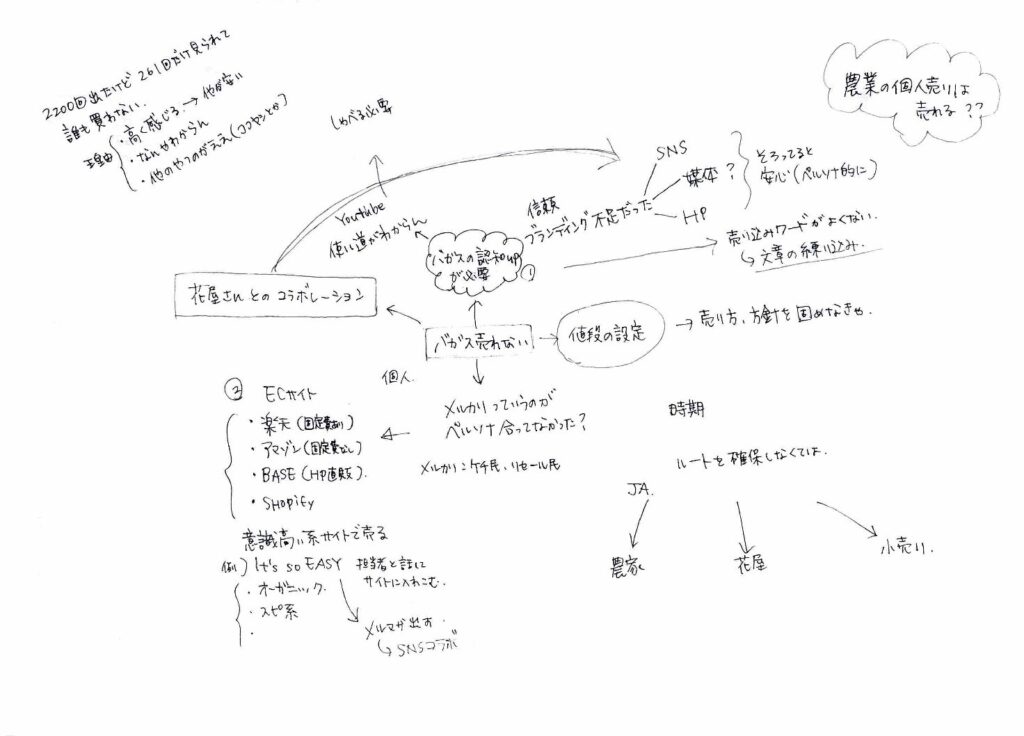 2200回出たけど 261回だけ見られて
誰も買わない.
理由
・高く感じる. → 他が安い
・なんかわからん
・他のやつのがええ(ココヤシとか)
しゃべる必要
農業の個人売りは
売れる??
SNS
媒体?
HP
そろってると
安心(ペルソナ的に)
信頼
ブランディング不足だった
Youtube
使い道がわからん
バガスの認知up
が必要
①
売り込みワードがよくない.
文章の練り込み.
花屋さんとのコラボレーション
バガス売れない
値段の設定
→ 売り方、方針を固めなきゃ.
個人.
② ECサイト
・楽天(固定費あり)
・アマゾン(固定費なし)
・BASE(HP直販).
・SHopify
メルカリっていうのが
ペルソナ合ってなかった?
メルカリ=ケチ民、リセール民
意識高い系サイトで売る
例) It's so EASY
担当者と話して
サイトに入れこむ.
・オーガニック.
・スピ系
・
メルマガ出す.
SNSコラボ
時期
ルートを確保しなくては.
JA.
農家
花屋
小売り.